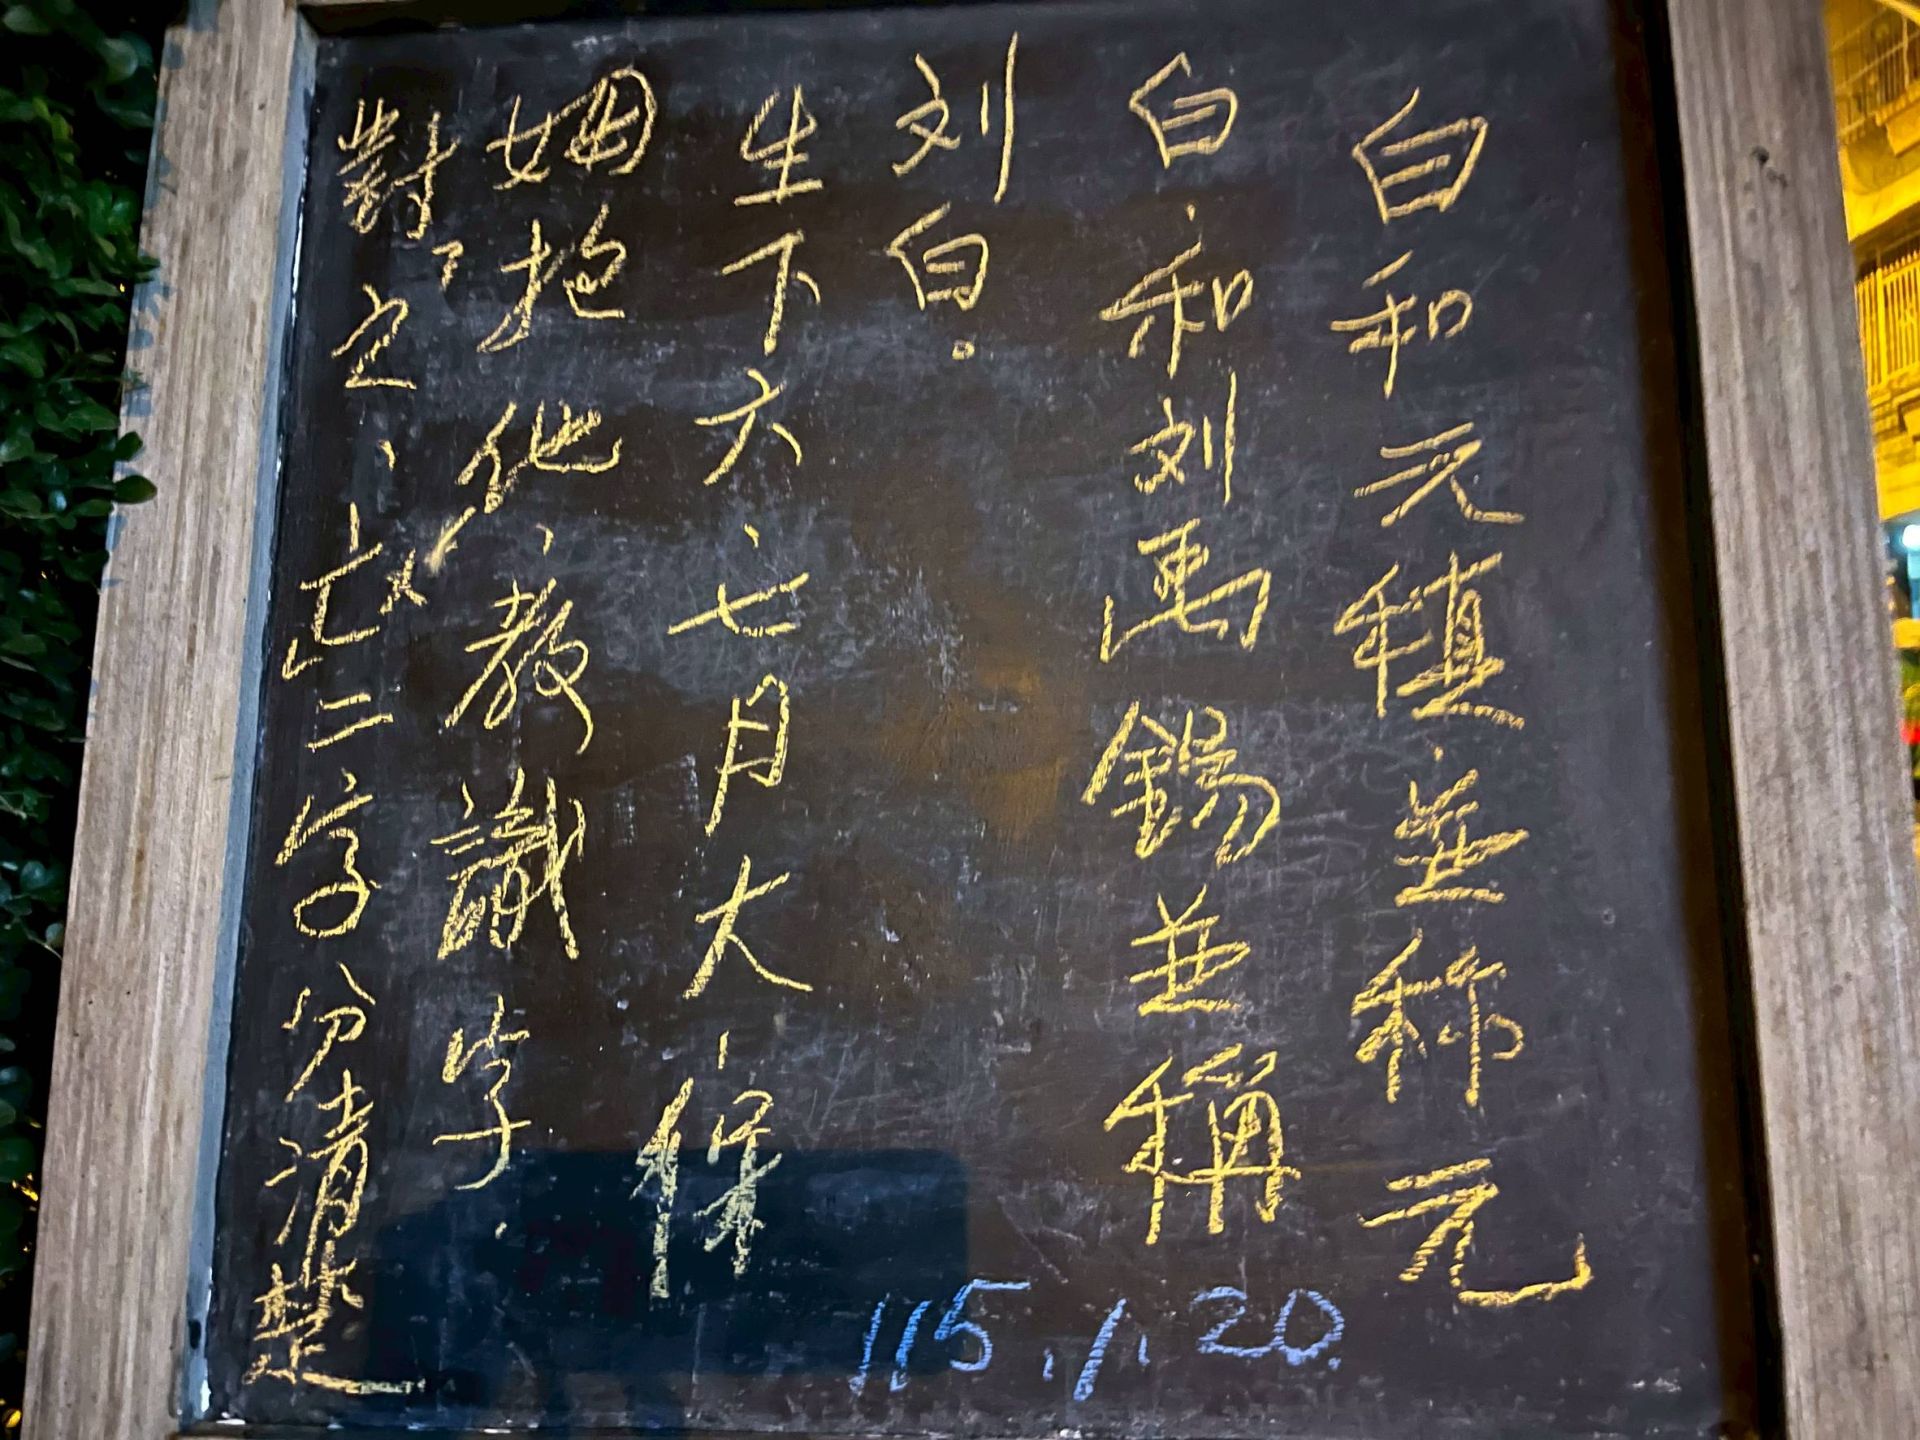 白和元稹、並称元
白、和刘禹錫並稱
刘白。
生下六、七月大、保
姆抱他、教識字.
對，之、亡二字分清楚
115.1.20.